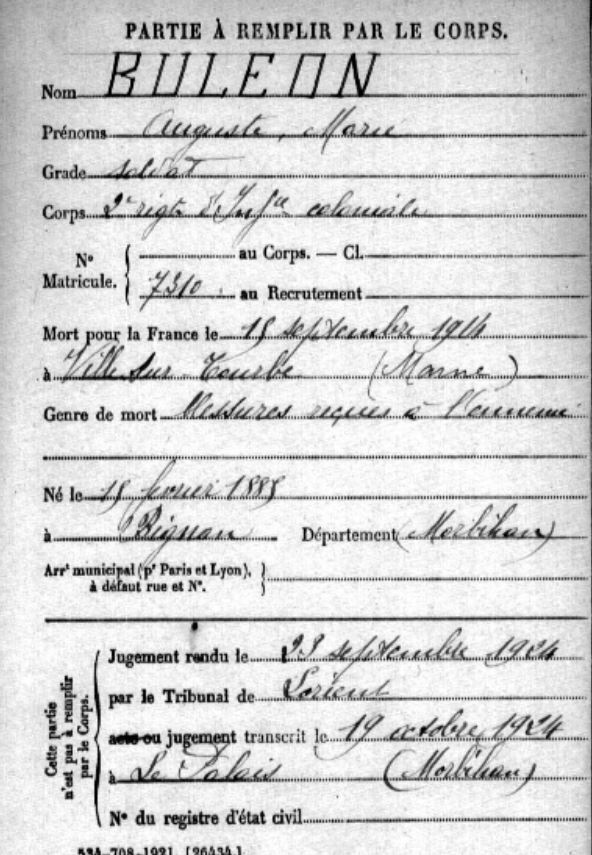 PARTIE À REMPLIR PAR LE CORPS.
Nom BULEON
Prénoms Auguste, Marie
Grade soldat
Corps 2e rigt d'Infie coloniale
N° Matricule. { au Corps. — Cl.
7310. au Recrutement
Mort pour la France le 15 septembre 1914
à Ville sur Tourbe (Marne)
Genre de mort blessures reçues à l'ennemi
Né le février 188
à Bignan Département (Morbihan)
Arrt municipal (pr Paris et Lyon), à défaut rue et N°. }
Cette partie n'est pas à remplir par le Corps.
Jugement rendu le 23 septembre 1924
par le Tribunal de Lorient
acte ou jugement transcrit le 19 octobre 1924
à Le Palais (Morbihan)
N° du registre d'état civil
534-708-1921. [26434.]